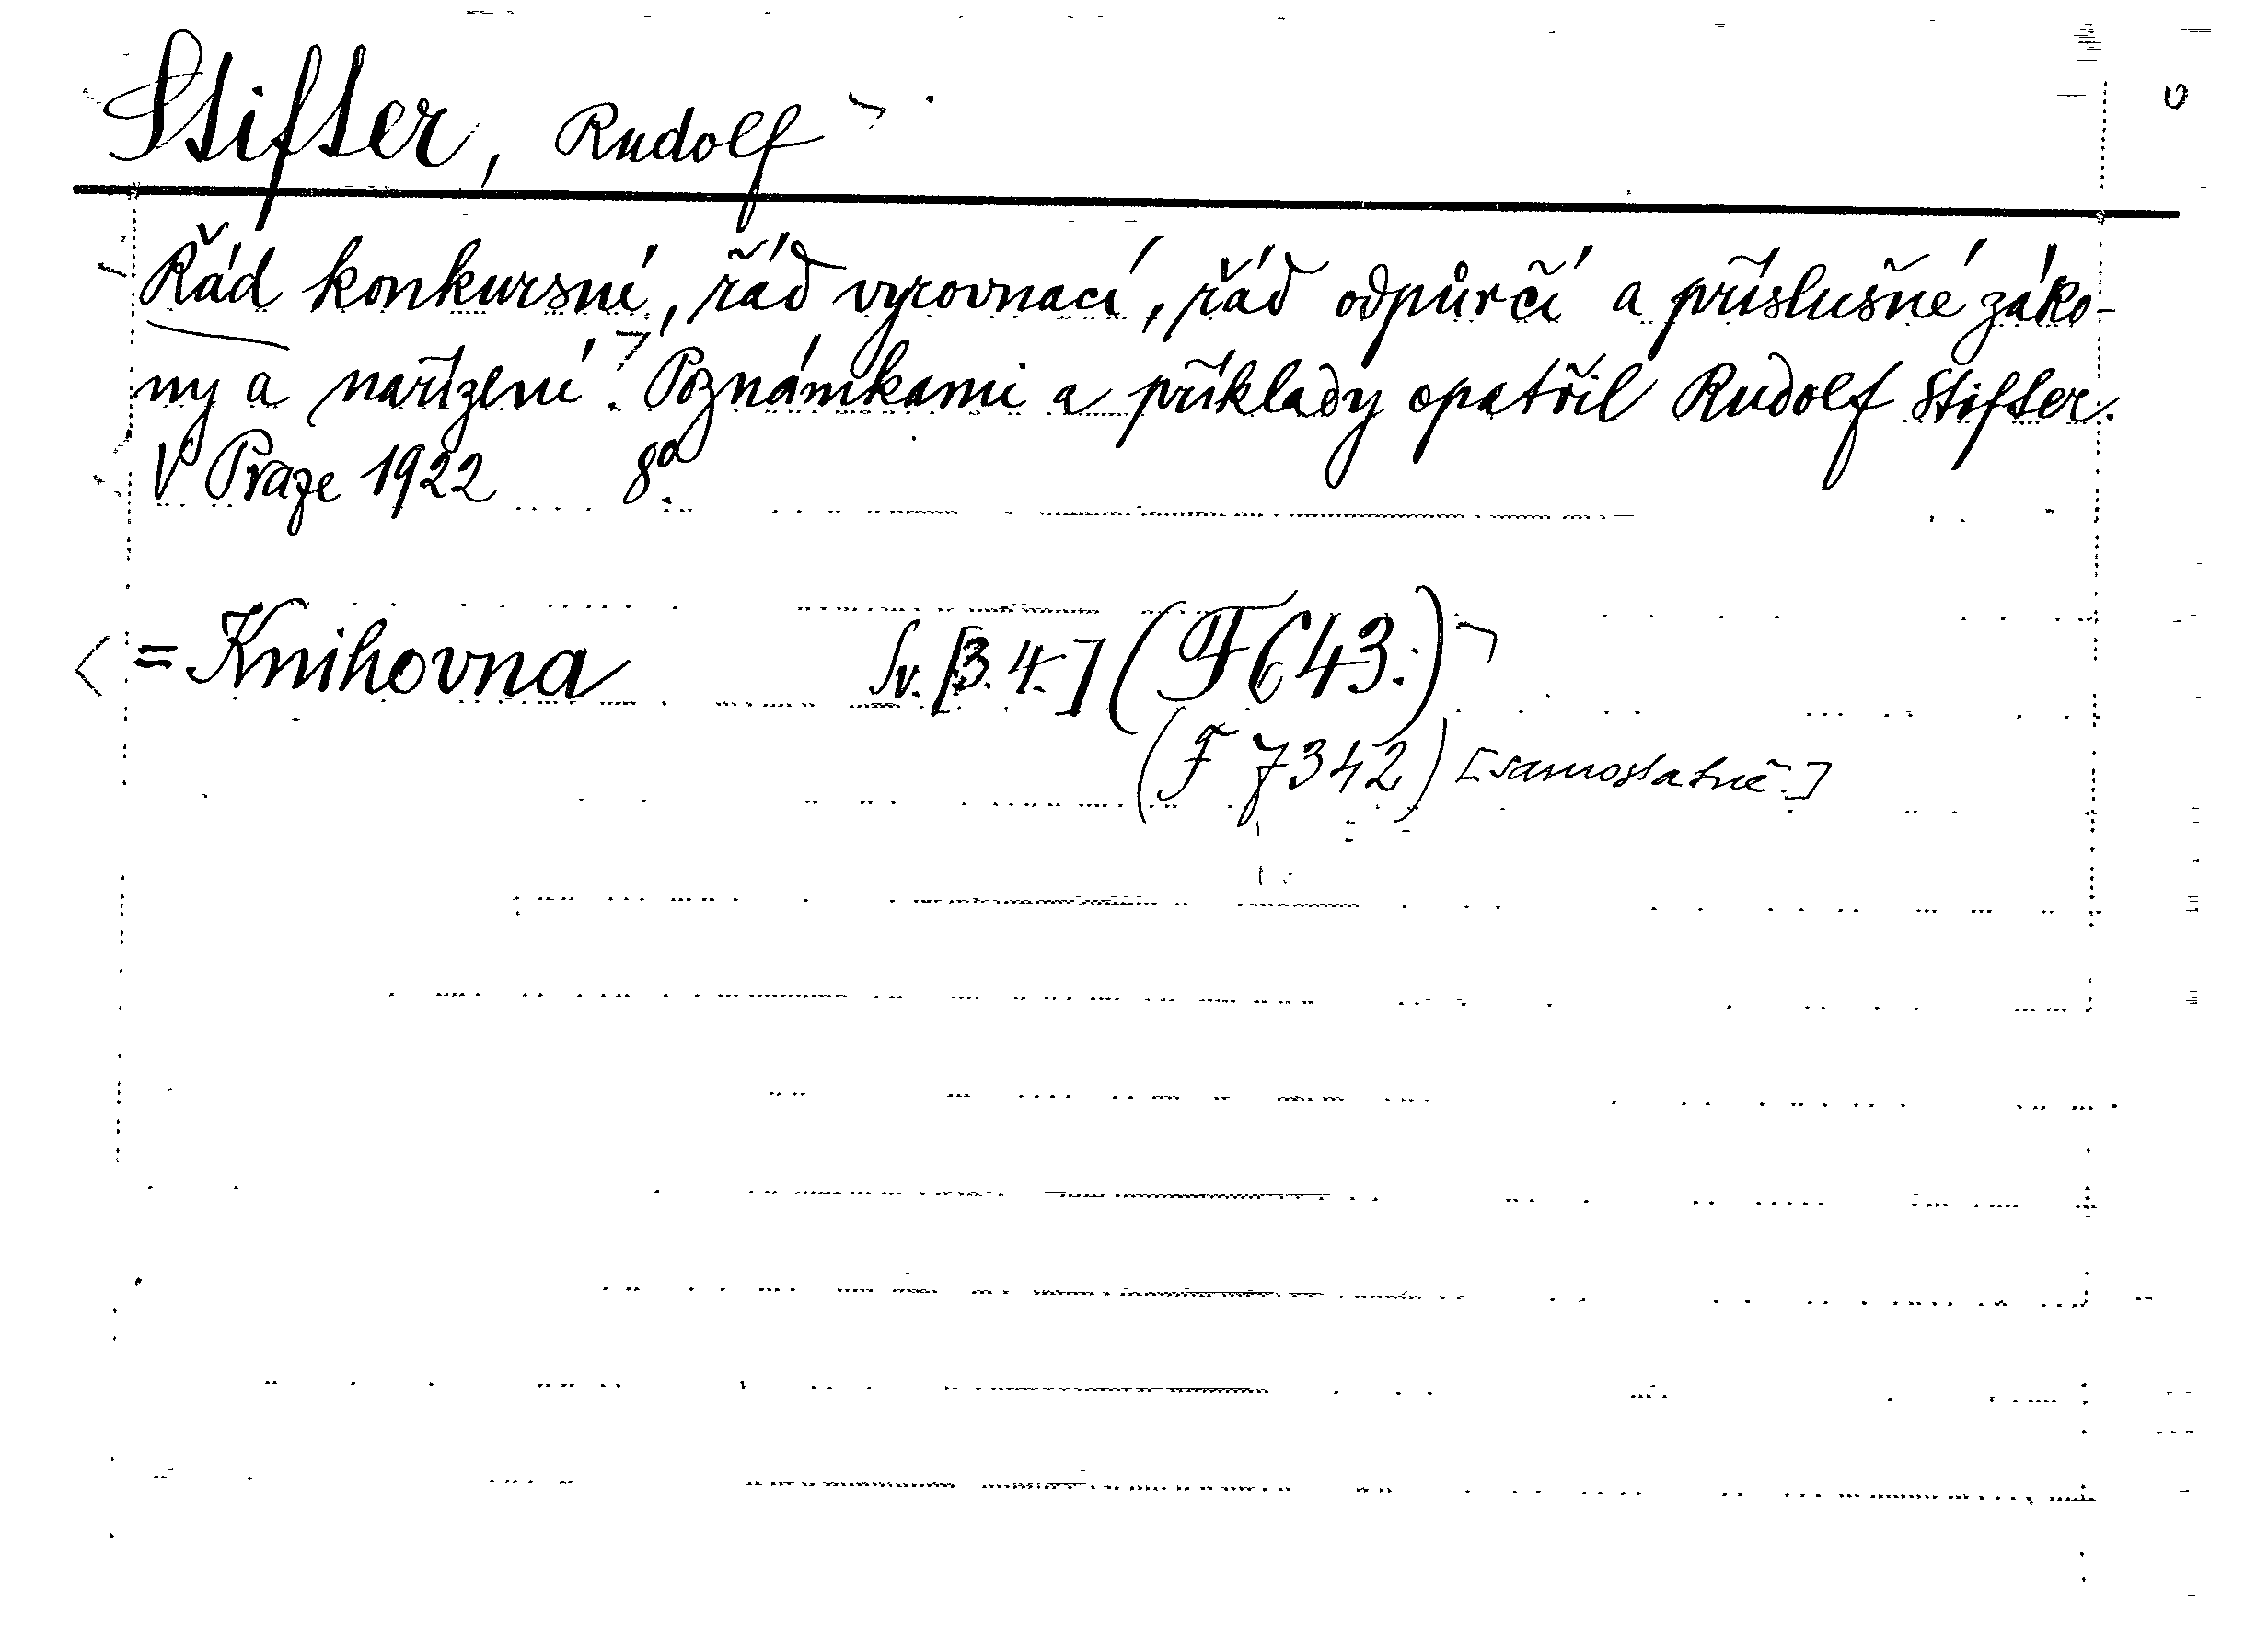 Stifter, Rudolf
Řád konkursní, řád vyrovnací, řád odpůrčí a příslušné záko-
ny a nařízení. Poznámkami a příklady opatřil Rudolf Stifter.
V Praze 1922 8º.
= Knihovna Sv. [3. 4.] (F 643.)
(F 7342) [samostatně.]